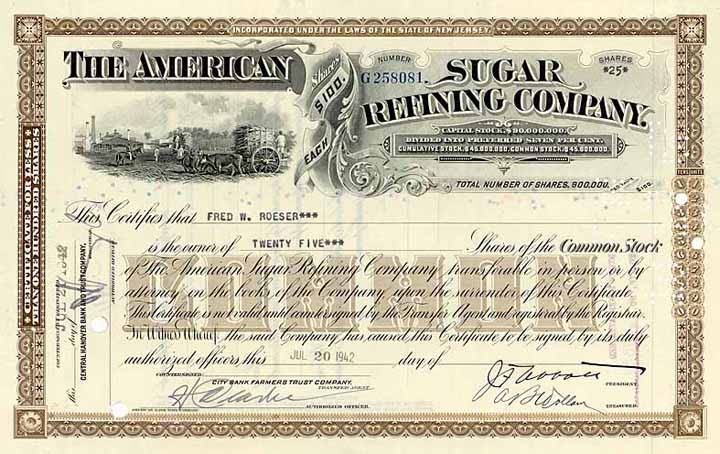 INCORPORATED UNDER THE LAWS OF THE STATE OF NEW JERSEY.
THE AMERICAN
SUGAR
REFINING COMPANY.
Shares
$100.
EACH
NUMBER
G258081.
SHARES
*25*
CAPITAL STOCK, $90,000,000.
DIVIDED INTO PREFERRED SEVEN PER CENT.
CUMULATIVE STOCK, $45,000,000. COMMON STOCK, $45,000,000.
TOTAL NUMBER OF SHARES, 900,000.
$100.
This Certifies that FRED W. ROESER***
is the owner of TWENTY FIVE*** Shares of the Common Stock
of The American Sugar Refining Company transferable in person or by
attorney on the books of the Company upon the surrender of this Certificate.
This Certificate is not valid until countersigned by the Transfer Agent and registered by the Registrar.
In Witness Whereof the said Company has caused this Certificate to be signed by its duly
authorized officers this JUL 20 1942 day of
COMMON
COUNTERSIGNED:
CITY BANK FARMERS TRUST COMPANY,
TRANSFER AGENT.
AUTHORIZED OFFICER.
PRESIDENT.
TREASURER.
CERTIFICATE FOR LESS
THAN ONE HUNDRED SHARES
CENTRAL HANOVER BANK AND TRUST COMPANY,
this
day of
1942